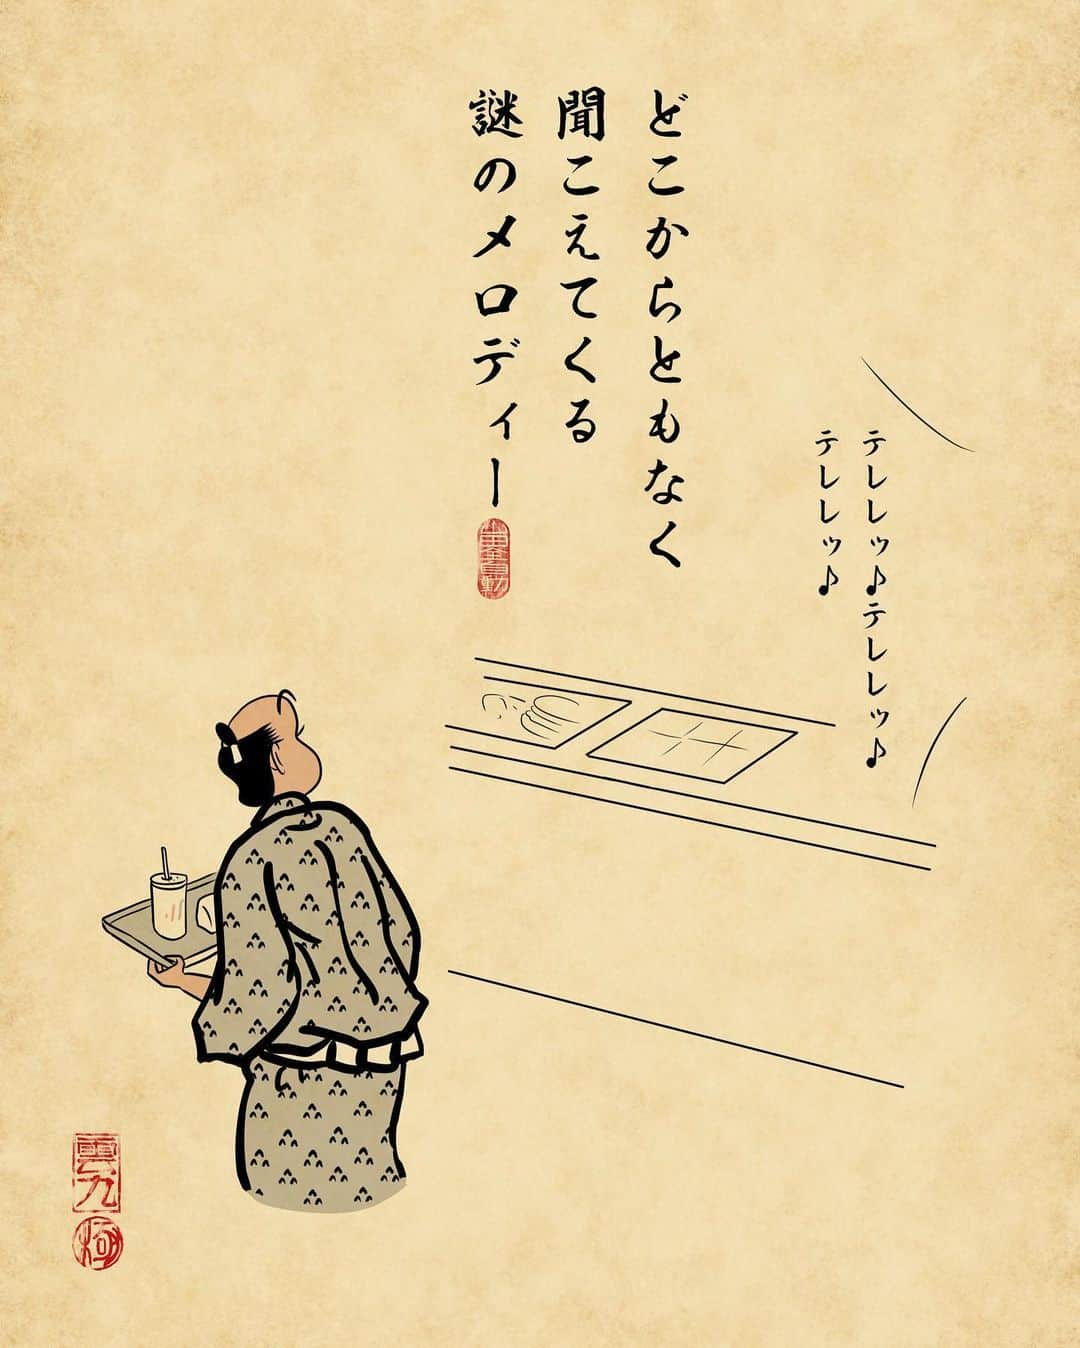 どこからともなく
聞こえてくる
謎のメロディー
テレレッ♪テレレッ♪
テレレッ♪